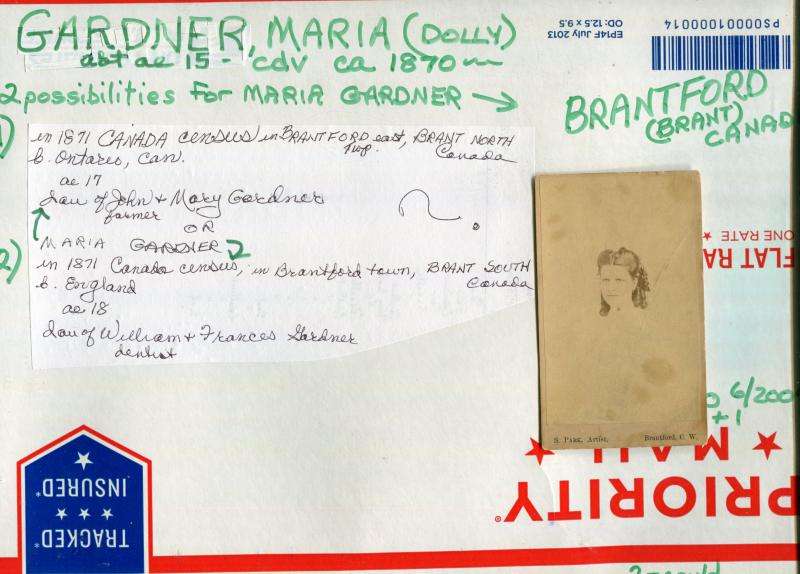 GARDNER, MARIA (DOLLY)
abt ae 15 - cdv ca 1870
2 possibilities for MARIA GARDNER →
BRANTFORD
(BRANT)
CANAD
1)
in 1871 CANADA census in BRANTFORD east, BRANT NORTH
twp. Canada
b. Ontario, Can.
ae 17
dau of John + Mary Gardner
farmer
OR
2)
MARIA GARDNER 2
in 1871 Canada census, in Brantford town, BRANT SOUTH
b. England Canada
ae 18
dau of William + Frances Gardner
dentist
?
EPI4F July 2013
OD: 12.5 x 9.5
PS00001000014
ONE RATE ★
FLAT RA
6/200
+1
S. PARK, Artist, Brantford, C. W.
★ MAIL ★
PRIORITY®
TRACKED®
★ ★ ★
INSURED®
★